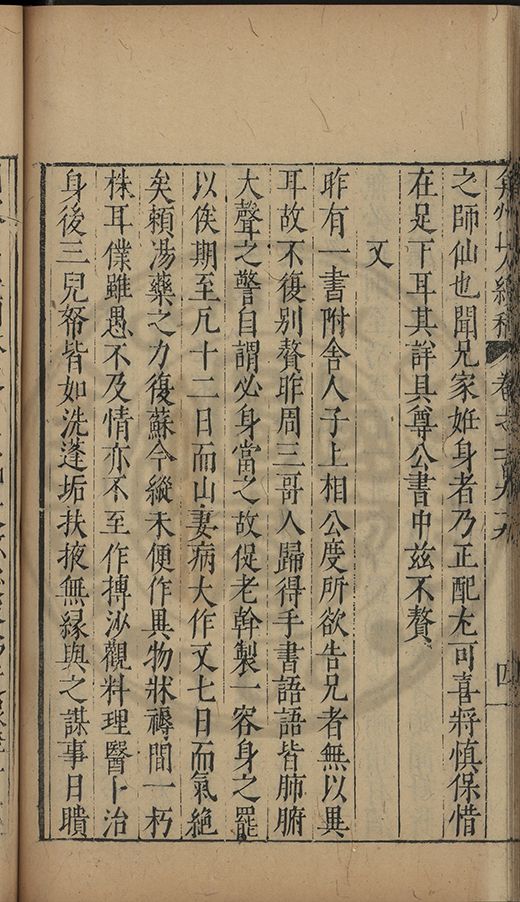 弇州山人續稿 卷之一百九十九 四
之師仙也聞兄家姙身者乃正配尤可喜將慎保惜
在足下耳其詳具尊公書中兹不贅
又
昨有一書附舍人子上相公度所欲告兄者無以異
耳故不復别贅昨周三哥人歸得手書語語皆肺腑
大聲之警自謂必身當之故促老幹製一容身之罷
以俟期至凡十二日而山妻病大作又七日而氣絶
矣賴湯藥之力復蘇今縱未便作具物狀褥間一朽
株耳僕雖愚不及情亦不至作摶沙觀料理醫卜治
身後三兒帑皆如洗蓬垢扶掖無縁與之謀事日聵